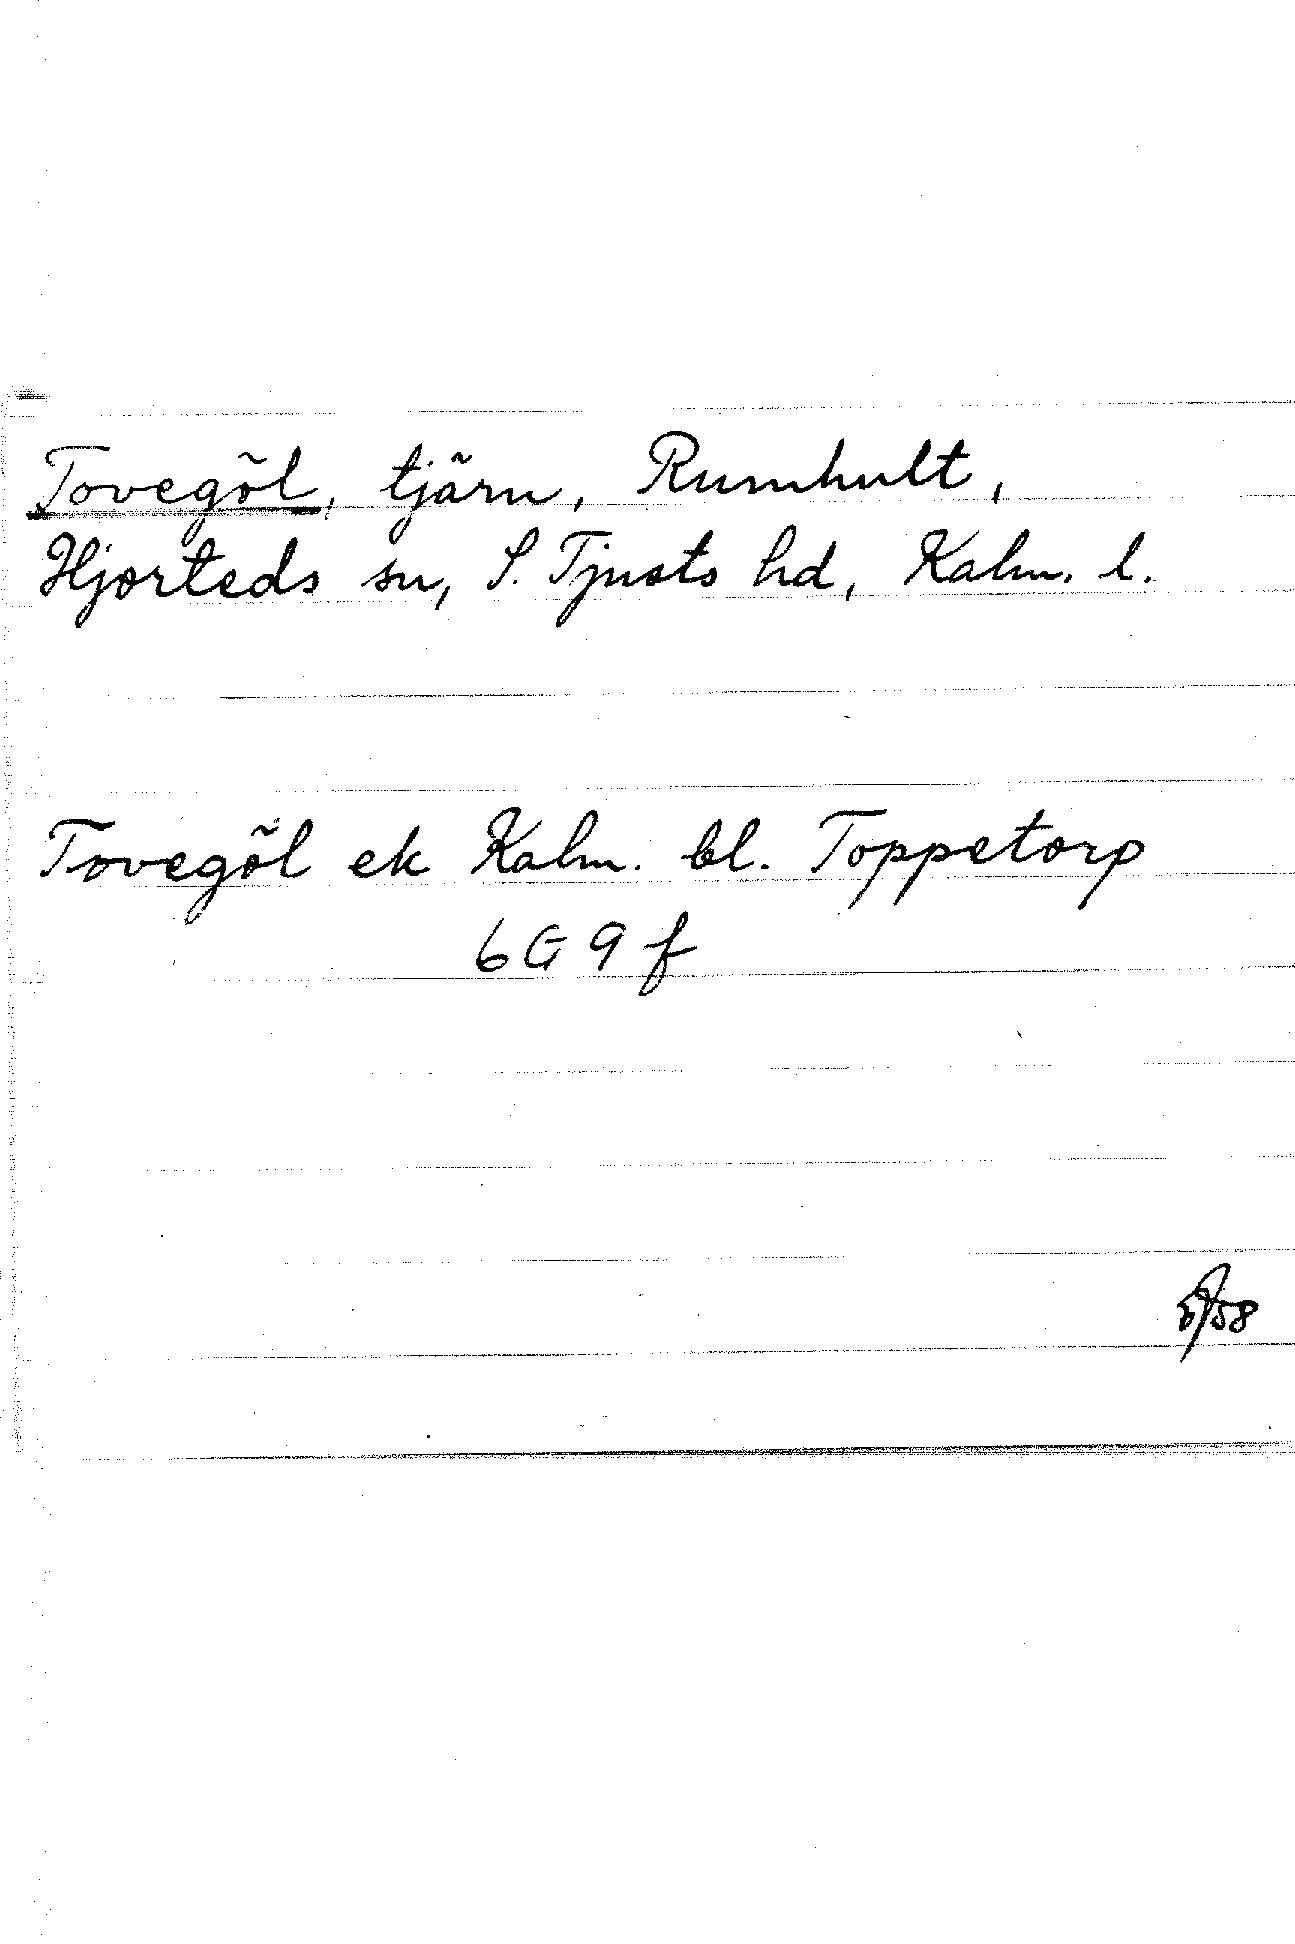 Tovegöl, tjärn, Rumhult,
Hjorteds sn, S. Tjusts hd, Kalm. l.
Tovegöl ek Kalm. bl. Toppetorp
6G 9 f